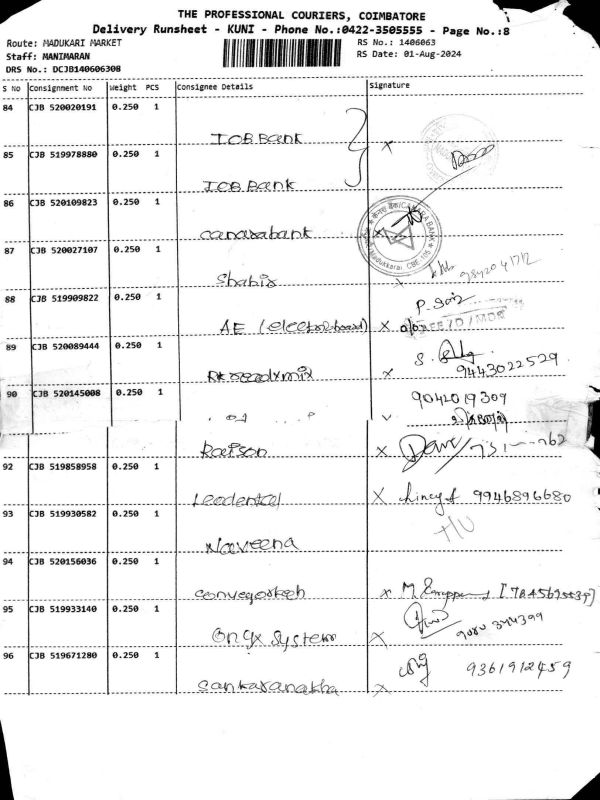 THE PROFESSIONAL COURIERS, COIMBATORE
Delivery Runsheet - KUNI - Phone No.:0422-3505555 - Page No.:8
Route: MADUKARI MARKET
RS No.: 1406063
Staff: MANIMARAN
RS Date: 01-Aug-2024
DRS No.: DCJB140606308
S No Consignment No Weight PCS Consignee Details Signature
84 CJB 520020191 0.250 1
IOB Bank x
85 CJB 519978880 0.250 1
IOB Bank
86 CJB 520109823 0.250 1
canarabank x
CANARA BANK
Madukkarai, CBE-105
87 CJB 520027107 0.250 1
Shabir x 9842041712
88 CJB 519909822 0.250 1
AE (electri board) x
89 CJB 520089444 0.250 1
RK readymix x 9443022529
90 CJB 520145008 0.250 1
9042019309
Raison x
92 CJB 519858958 0.250 1
Leodental x 9946896680
93 CJB 519930582 0.250 1
Naveena
94 CJB 520156036 0.250 1
conveyortech x M
95 CJB 519933140 0.250 1
Onyx System x 344399
96 CJB 519671280 0.250 1
9361912459
x